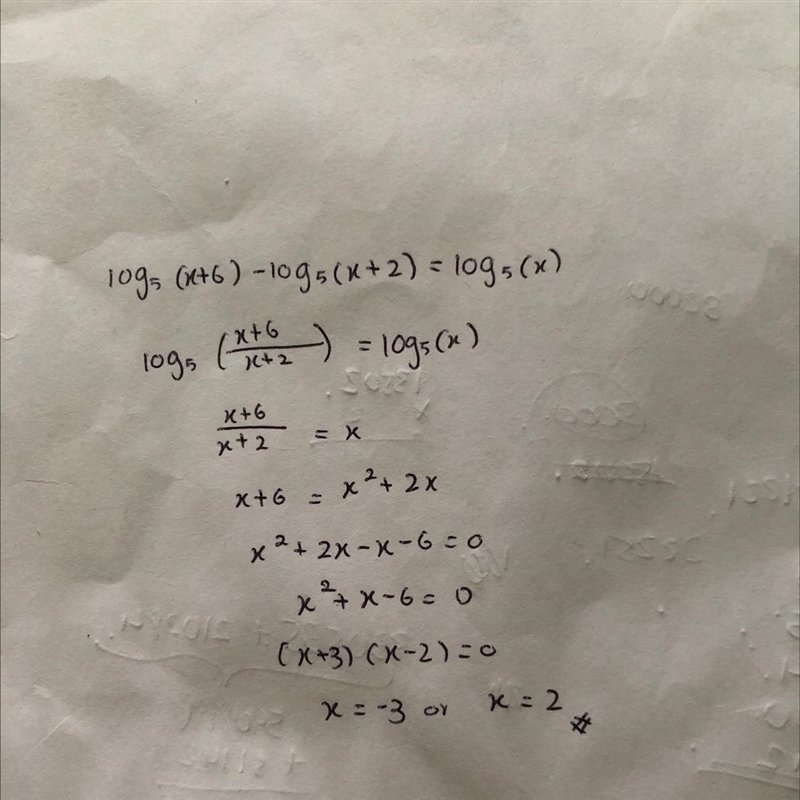 log₅ (x+6) - log₅ (x+2) = log₅ (x)
log₅ (x+6 / x+2) = log₅ (x)
x+6 / x+2 = x
x+6 = x² + 2x
x² + 2x - x - 6 = 0
x² + x - 6 = 0
(x+3) (x-2) = 0
x = -3 or x = 2 #